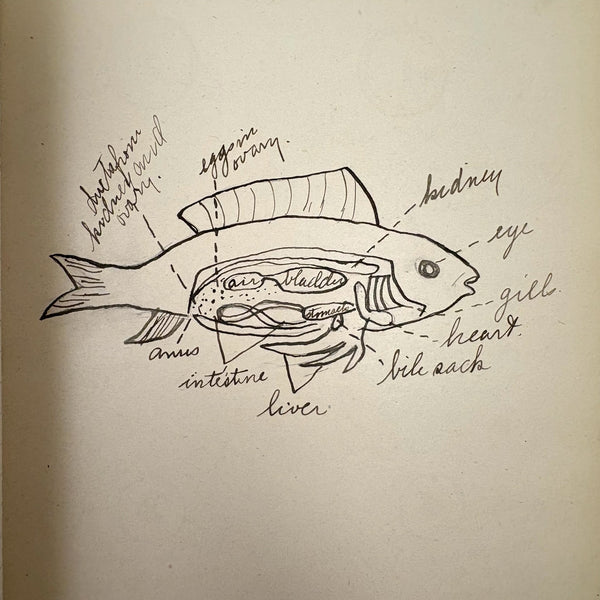 ducts from
kidney and
ovary.
eggs in
ovary.
kidney
eye
gills
heart.
bile sack
air bladder
stomach
anus
intestine
liver